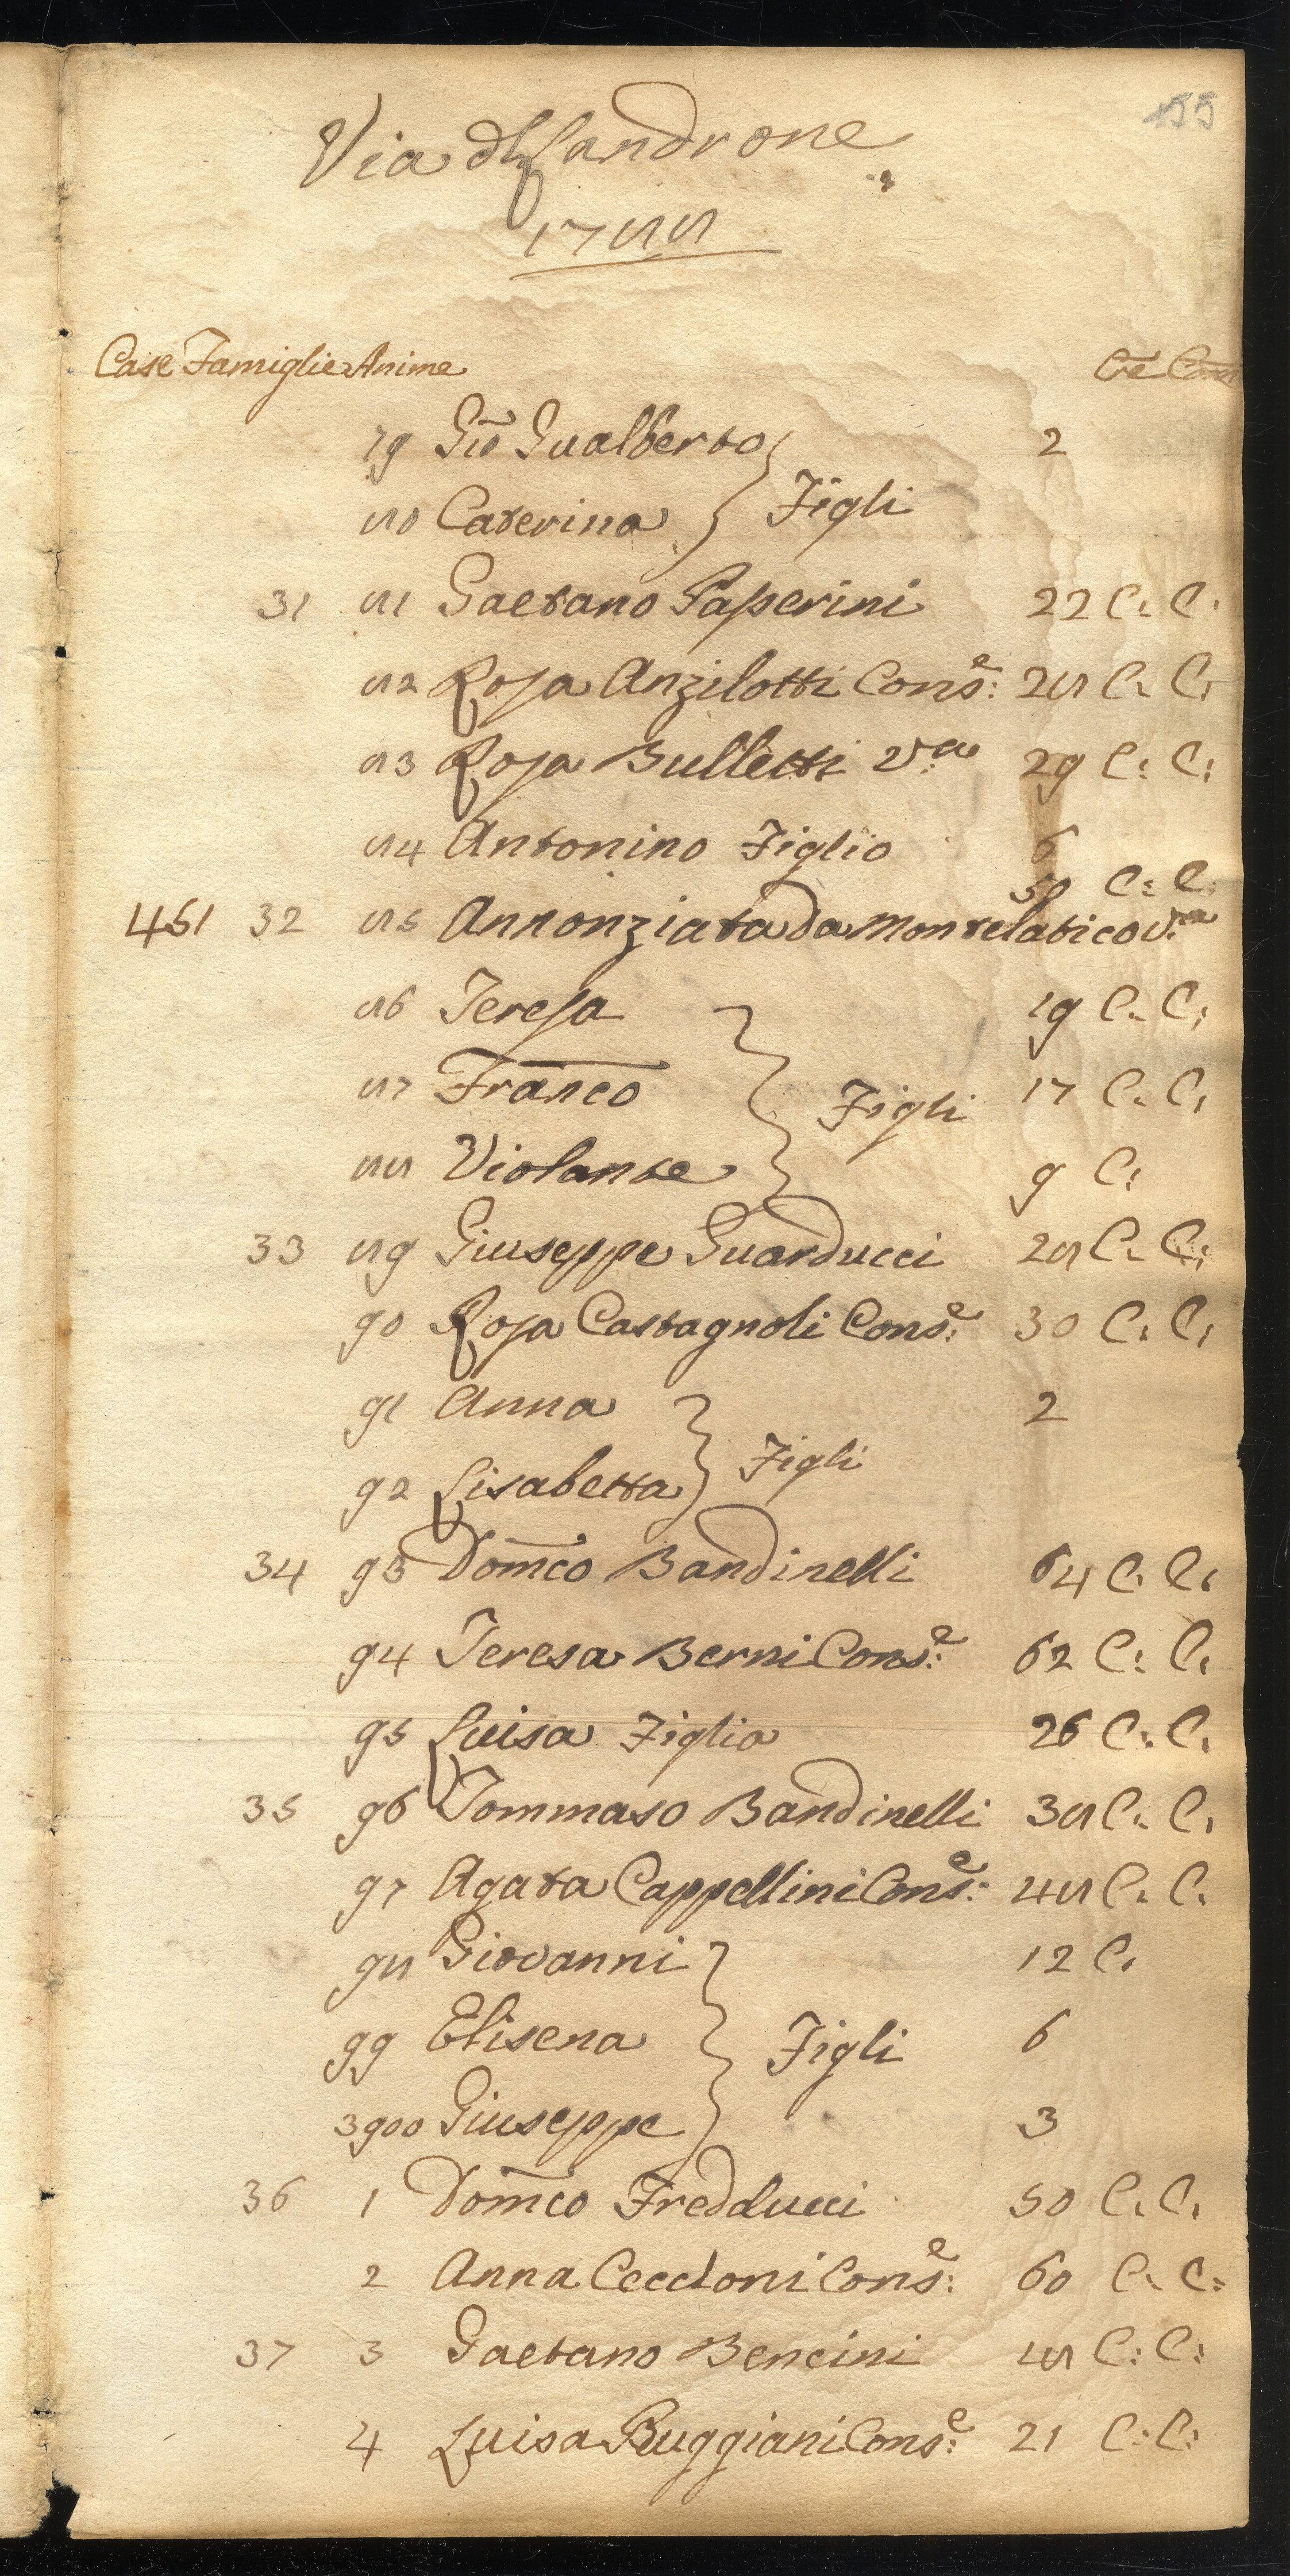 155
Via dl Landrone
1788
Case Famiglie Anime Cre Com
79 Gio Gualberto 2
80 Caterina } Figli
31 81 Gaetano Paperini 22 C. C.
82 Rosa Anzilotti Cons.e 28 C. C.
83 Rosa Bulletti V.a 29 C. C.
84 Antonino Figlio 6
50 C. C.
451 32 85 Annonziata da Montelatico V.a
86 Teresa 19 C. C.
87 Franco } Figli 17 C. C.
88 Violante 9 C.
33 89 Giuseppe Guarducci 28 C. C.
90 Rosa Castagnoli Cons.e 30 C. C.
91 Anna 2
92 Lisabetta } Figli
34 93 Domco Bandinelli 64 C. C.
94 Teresa Berni Cons.e 62 C. C.
95 Luisa Figlia 26 C. C.
35 96 Tommaso Bandinelli 38 C. C.
97 Agata Cappellini Cons.e 48 C. C.
98 Giovanni 12 C.
99 Elisena } Figli 6
3900 Giuseppe 3
36 1 Domco Fredducci 50 C. C.
2 Anna Ceccloni Cons.e 60 C. C.
37 3 Gaetano Bencini 18 C. C.
4 Luisa Buggiani Cons.e 21 C. C.